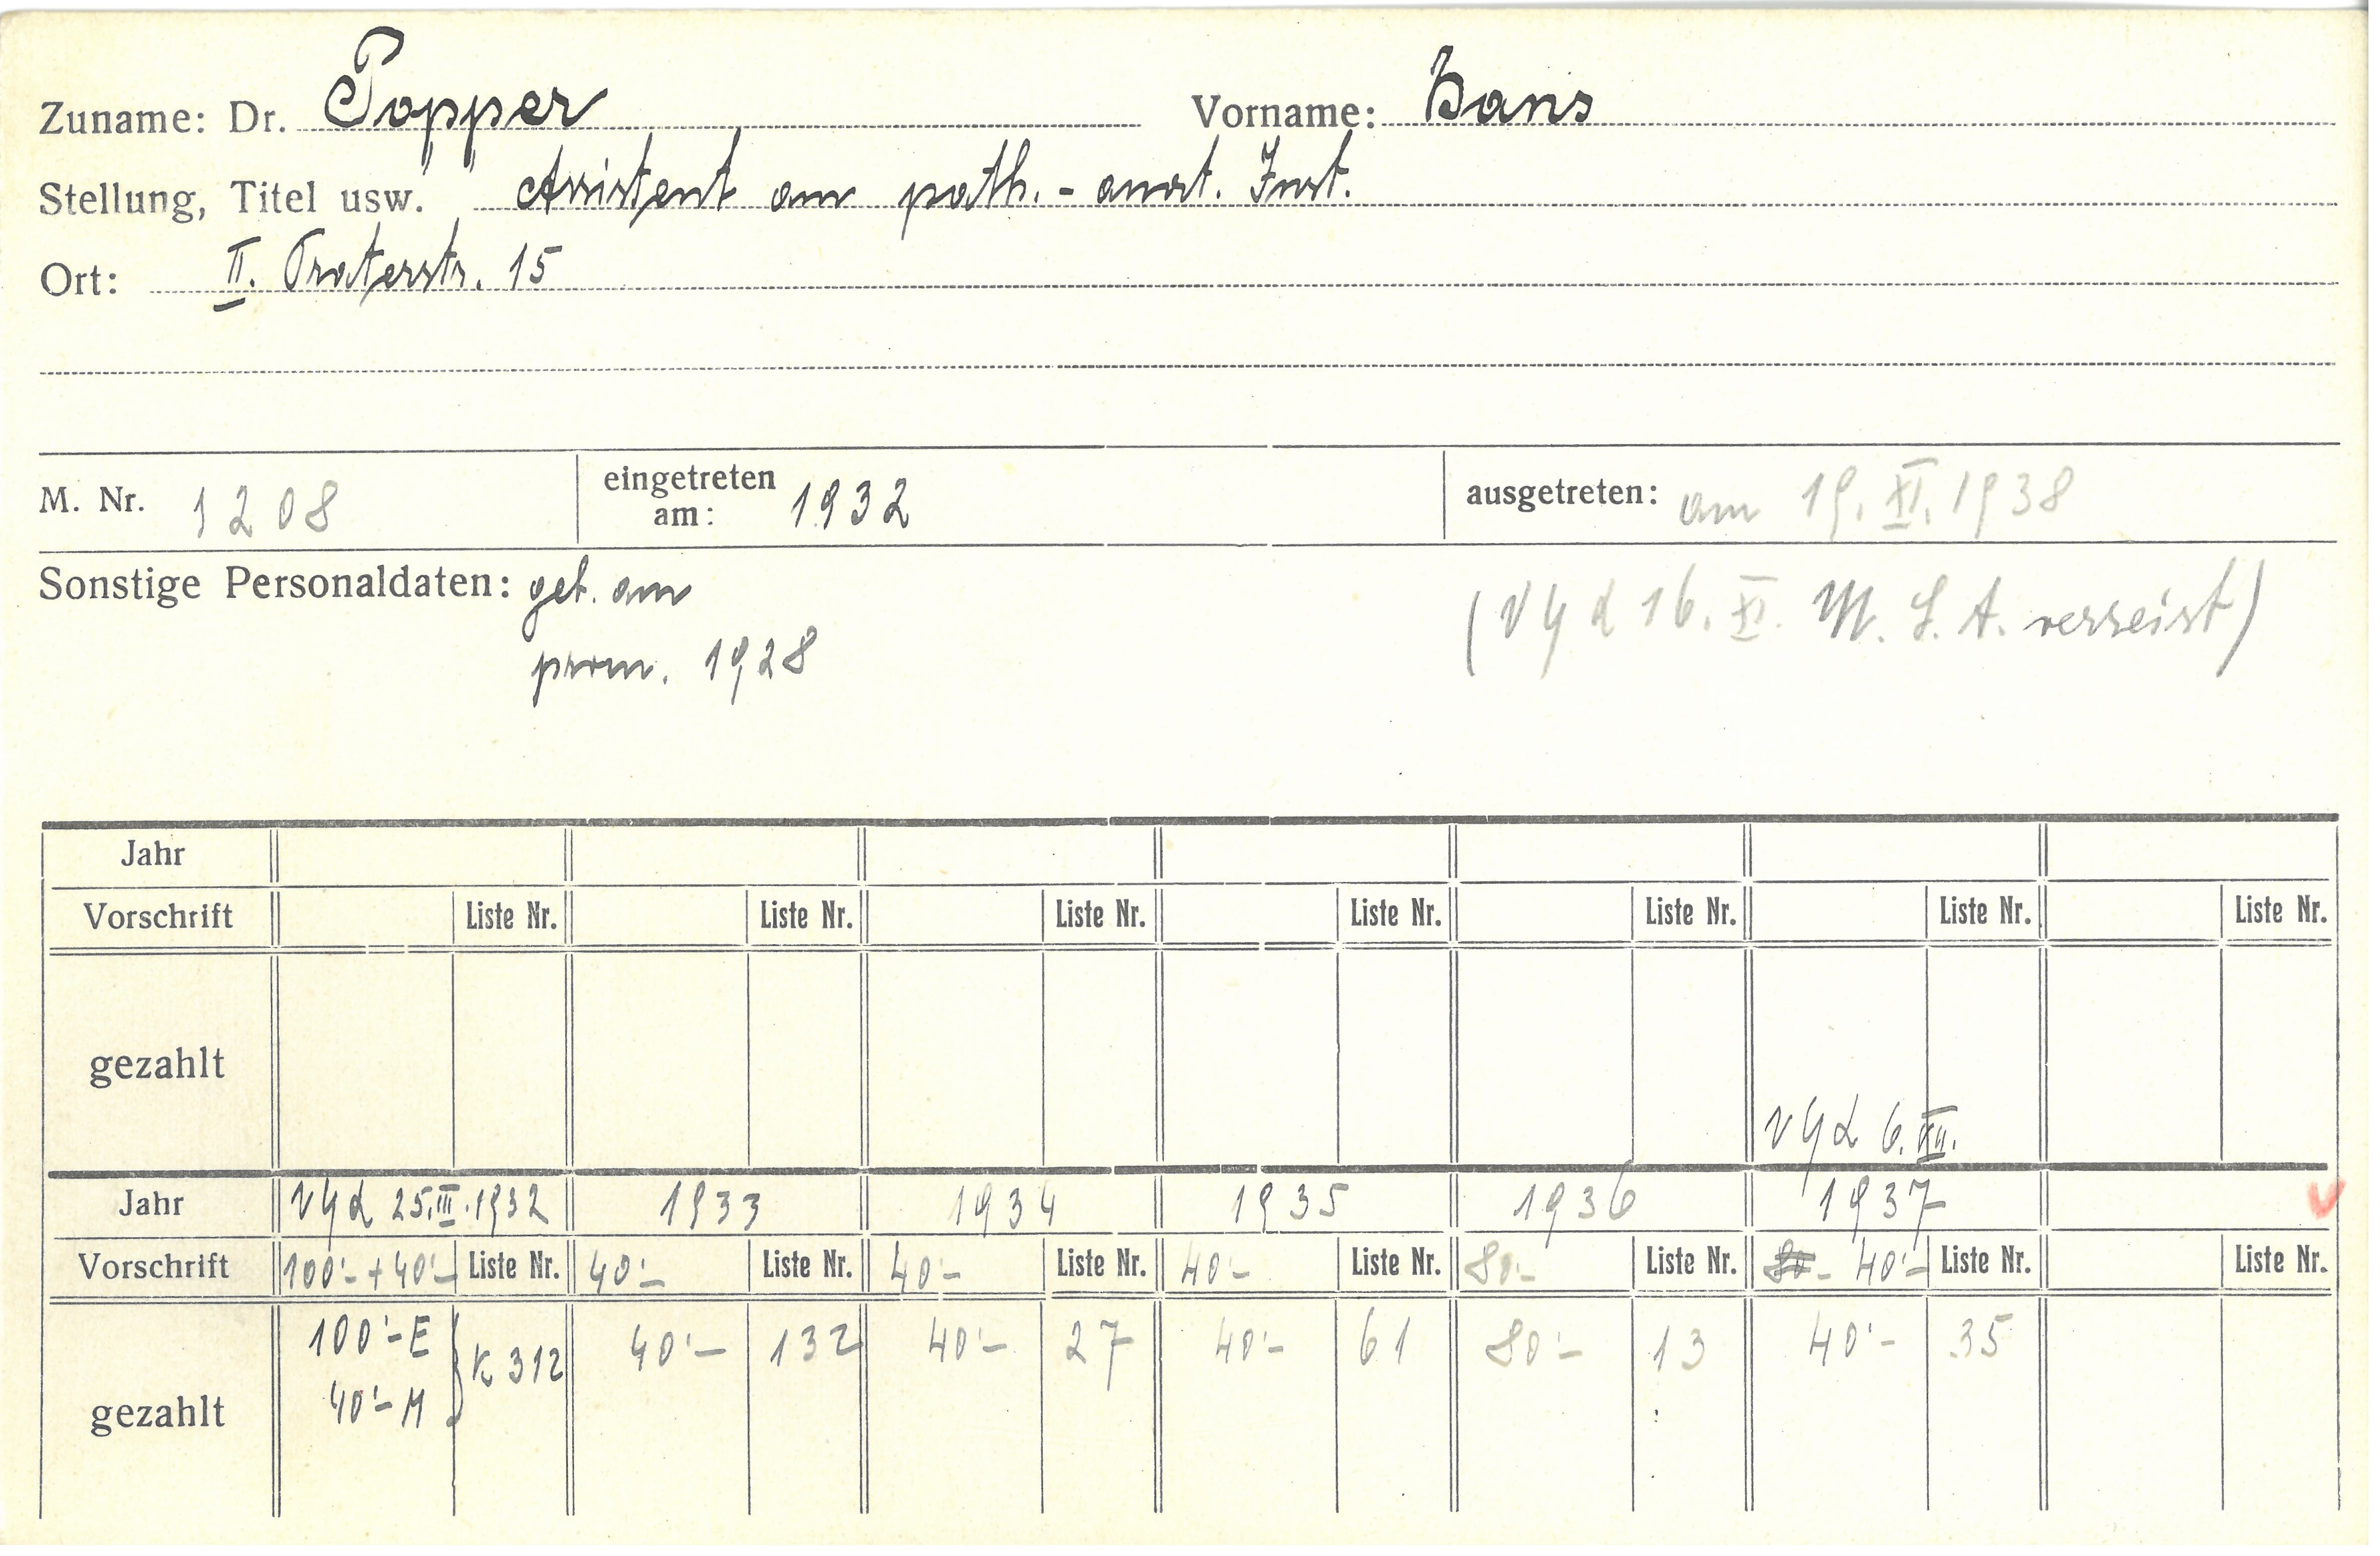 Zuname: Dr. Popper Vorname: Hans
Stellung, Titel usw. Assistent am path.-anat. Inst.
Ort: II. Praterstr. 15
M. Nr. 1208 eingetreten am: 1932 ausgetreten: am 19. XI. 1938
Sonstige Personaldaten: geb. am
(V 16. XI. U. S. A. verreist)
prom. 1928
Jahr
Vorschrift Liste Nr. Liste Nr. Liste Nr. Liste Nr. Liste Nr. Liste Nr. Liste Nr.
gezahlt
6. XII.
Jahr 25.III.1932 1933 1934 1935 1936 1937
Vorschrift 100'- + 40'- Liste Nr. 40'- Liste Nr. 40'- Liste Nr. 40'- Liste Nr. 80'- Liste Nr. 80'- 40'- Liste Nr. Liste Nr.
100'- E K 312 40'- 132 40'- 27 40'- 61 80'- 13 40'- 35
gezahlt 40'- M